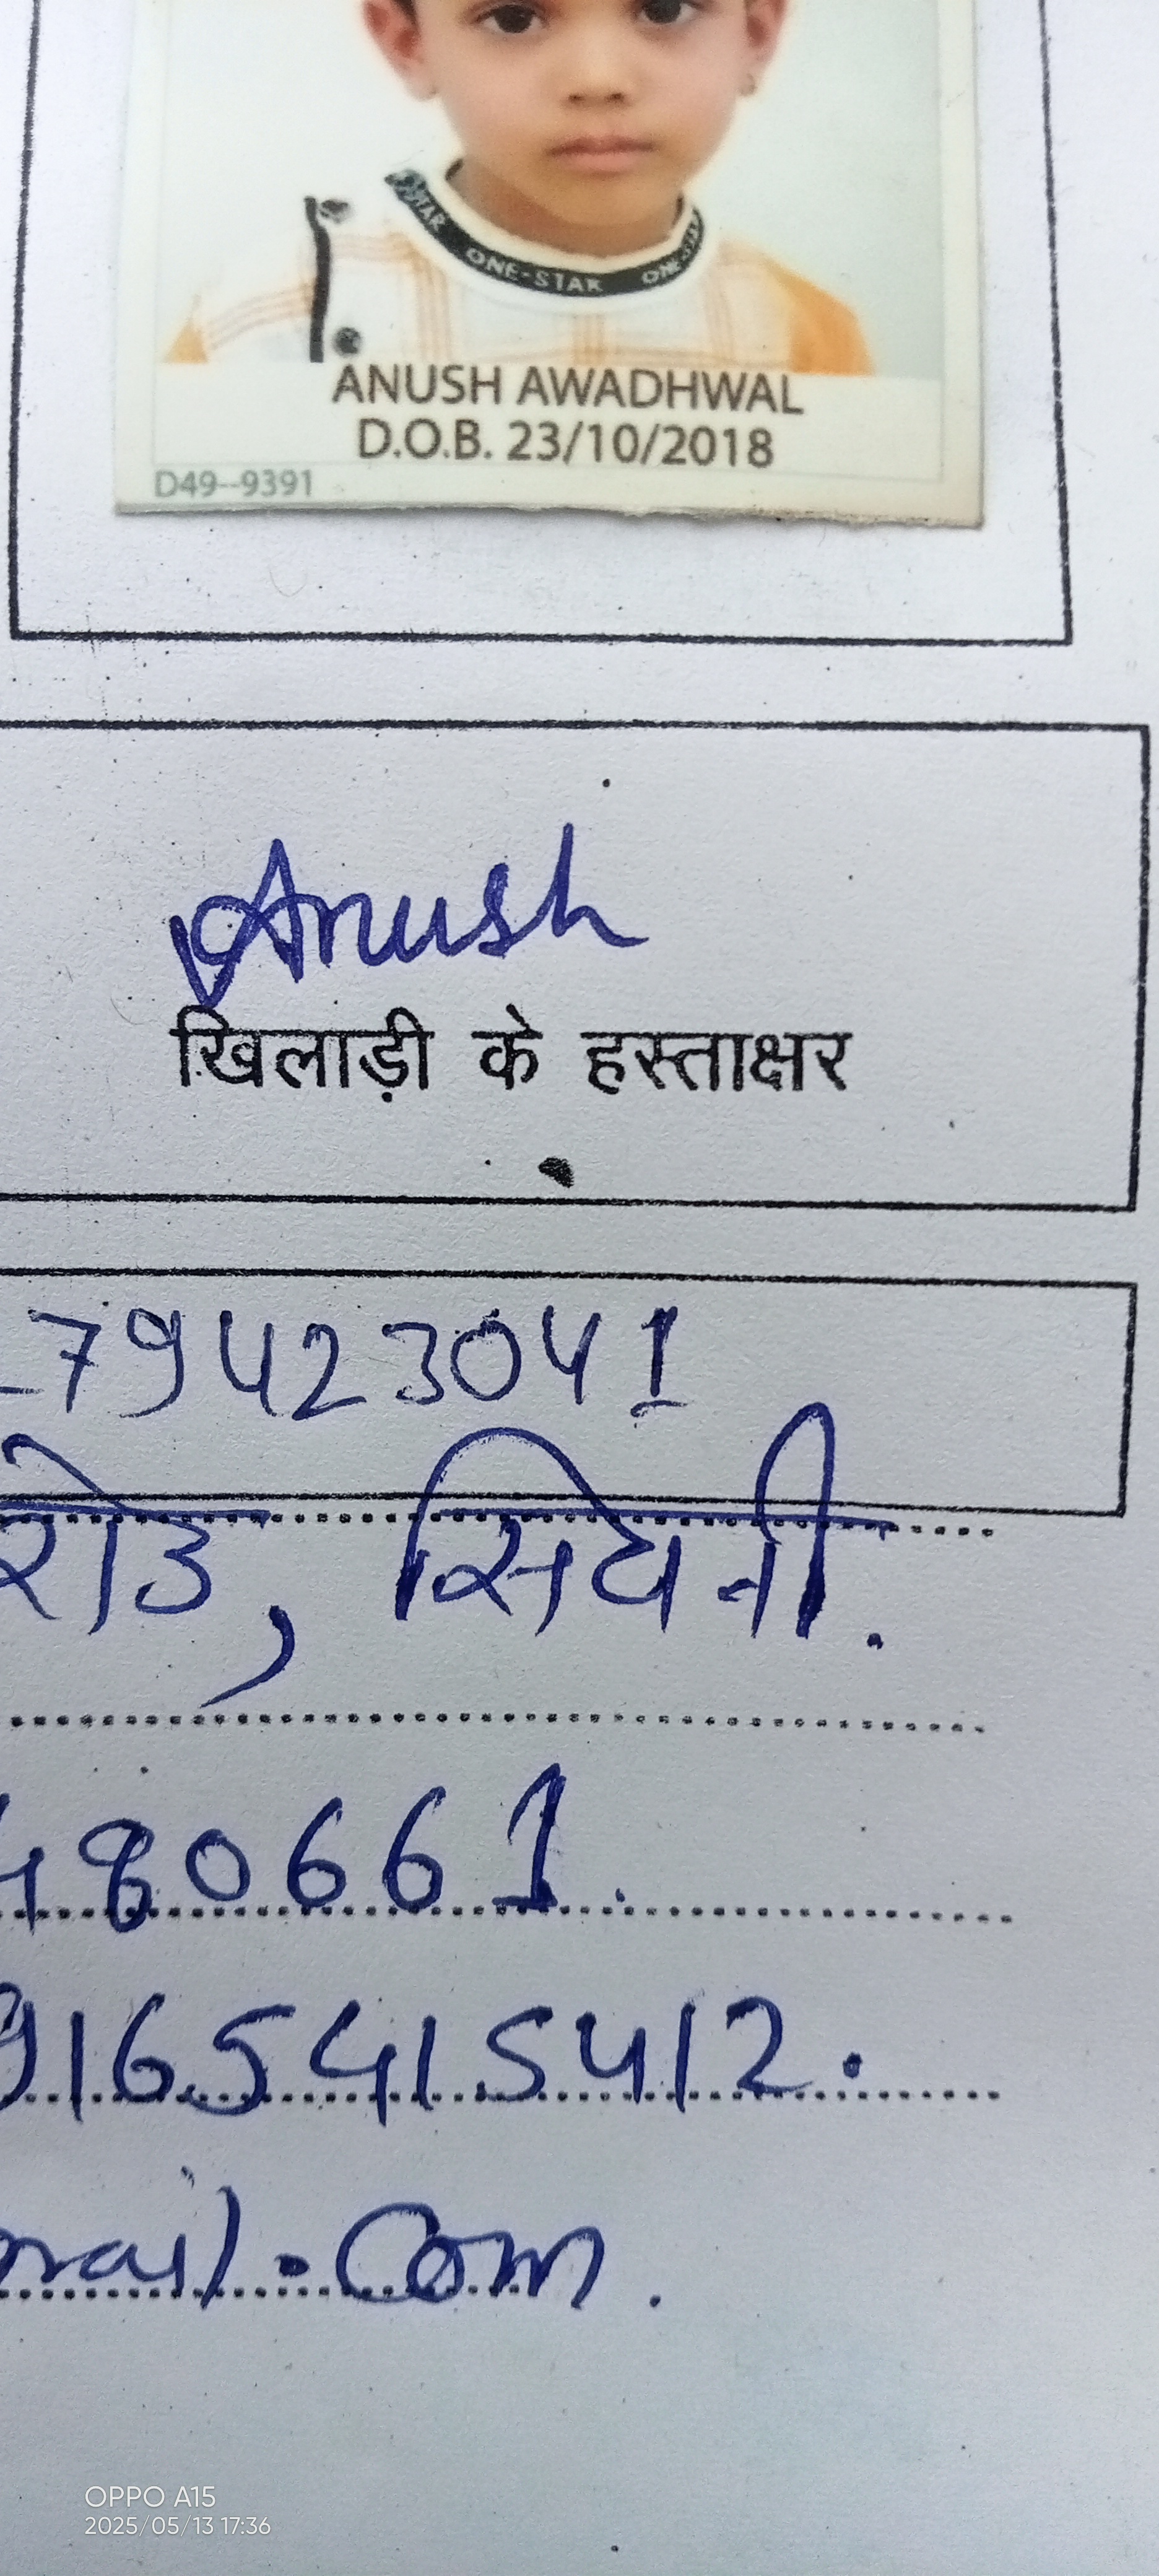 ONE-STAR
ANUSH AWADHWAL
D.O.B. 23/10/2018
D49--9391
Anush
खिलाड़ी के हस्ताक्षर
79423041
रोड, सिवनी.
480661.
9165415412.
mail.com.
OPPO A15
2025/05/13 17:36